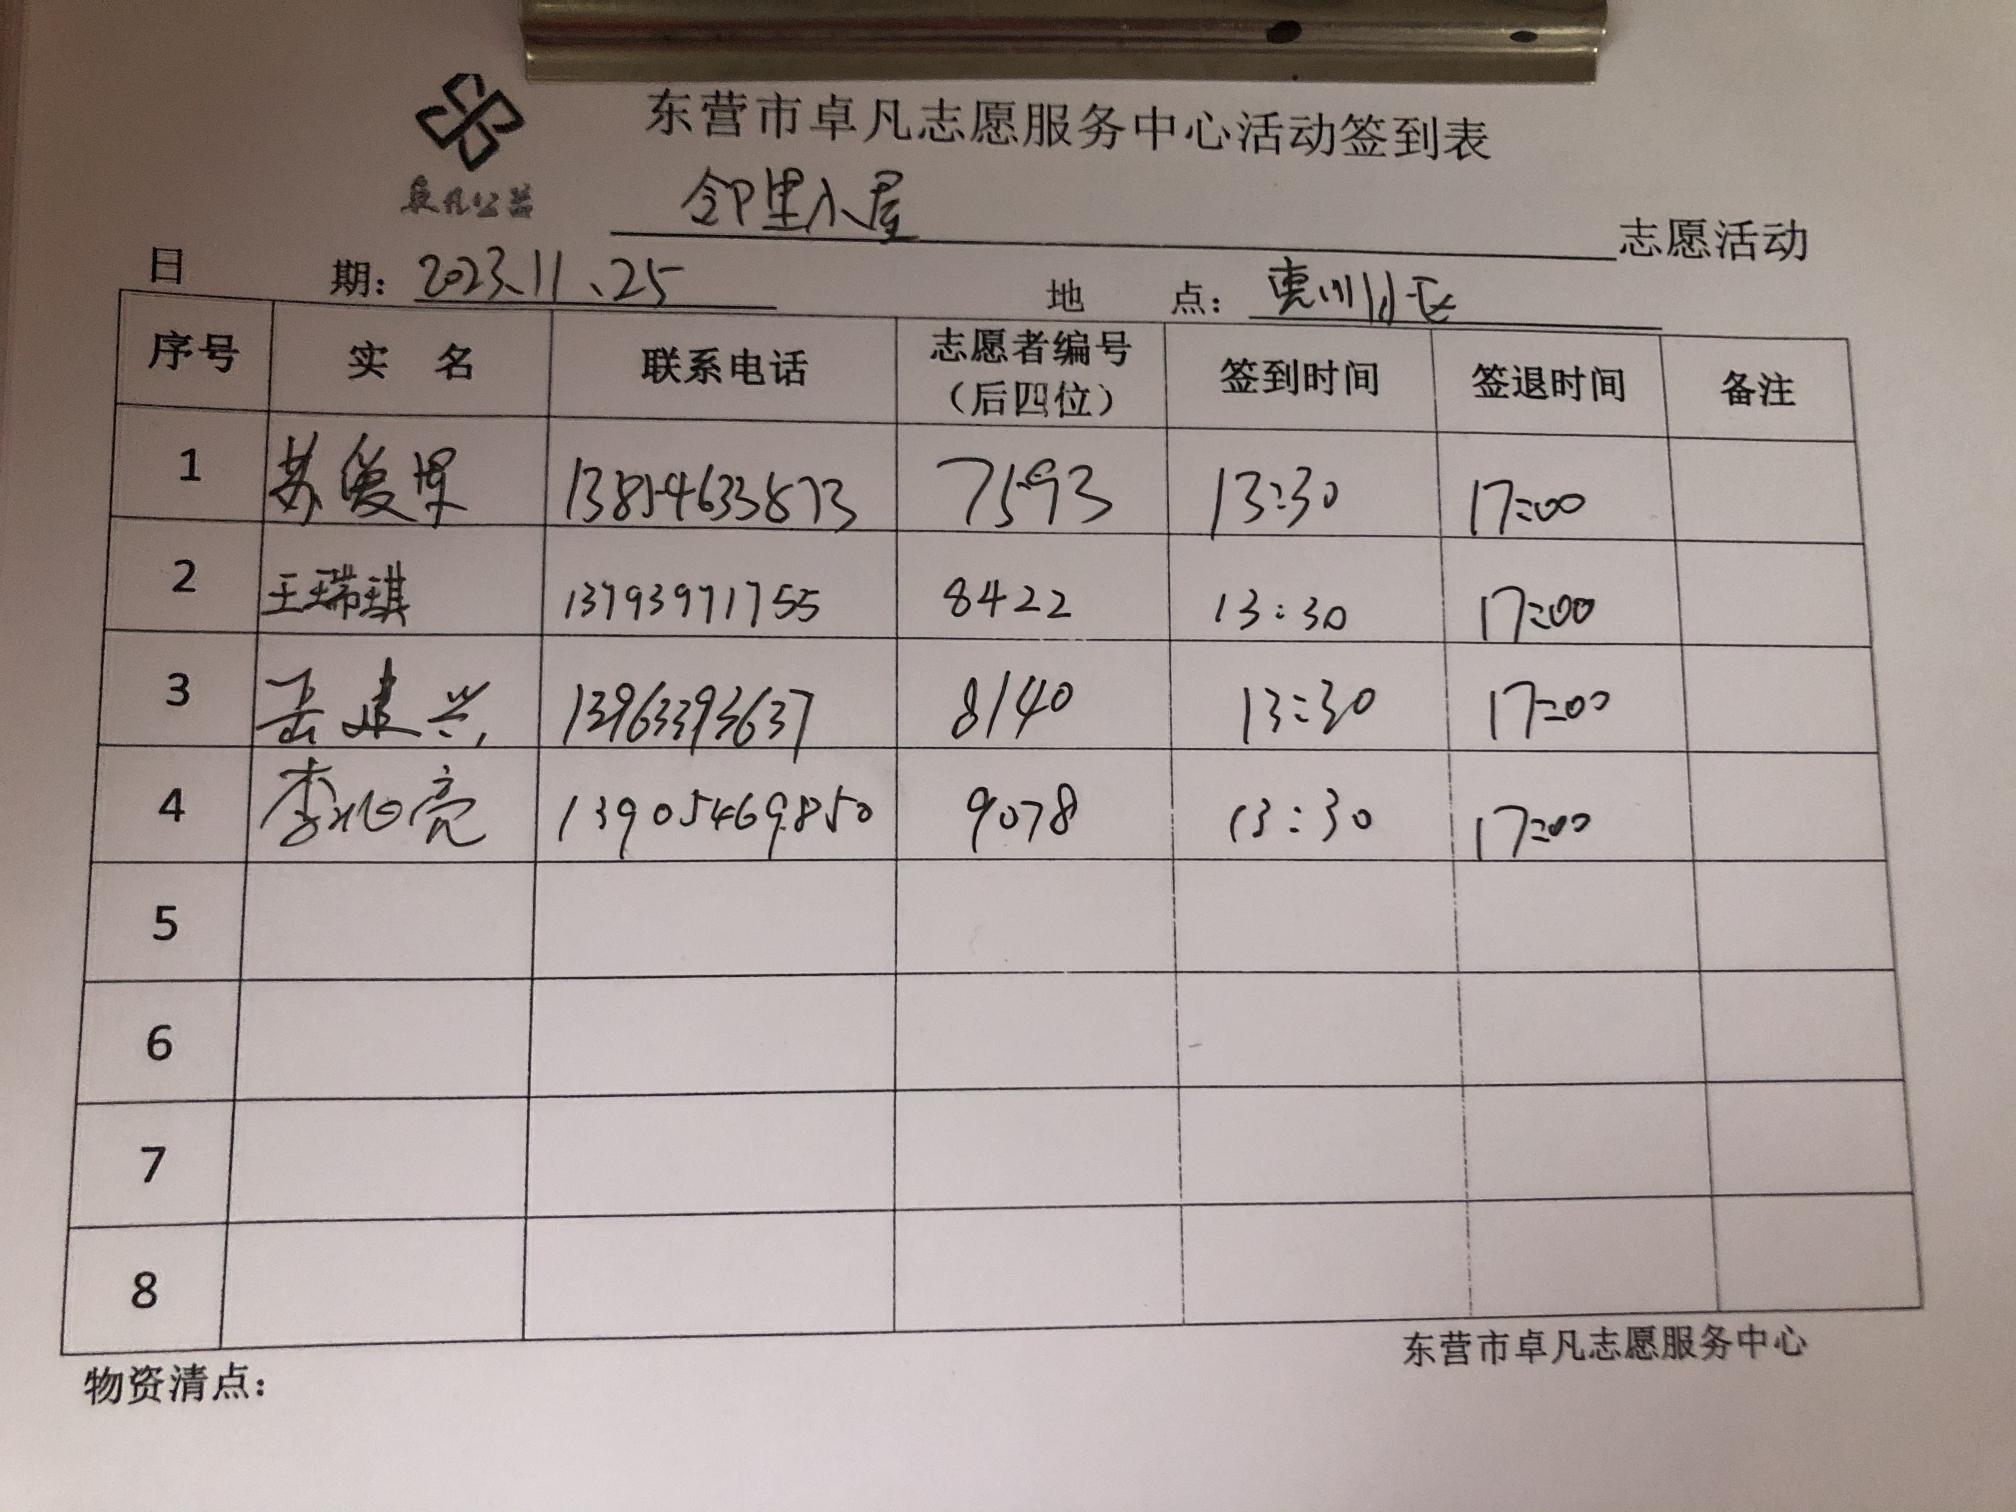 东营市卓凡志愿服务中心活动签到表
卓凡公益
邻里小屋 志愿活动
日 期: 2023.11.25 地 点:
序号 实 名 联系电话 志愿者编号(后四位) 签到时间 签退时间 备注
1 苏爱果 13854633873 7593 13:30 17:00
2 王瑞琪 13793971755 8422 13:30 17:00
3 岳建兴 13963393637 8140 13:30 17:00
4 李兆亮 13905469850 9078 13:30 17:00
5
6
7
8
东营市卓凡志愿服务中心
物资清点: